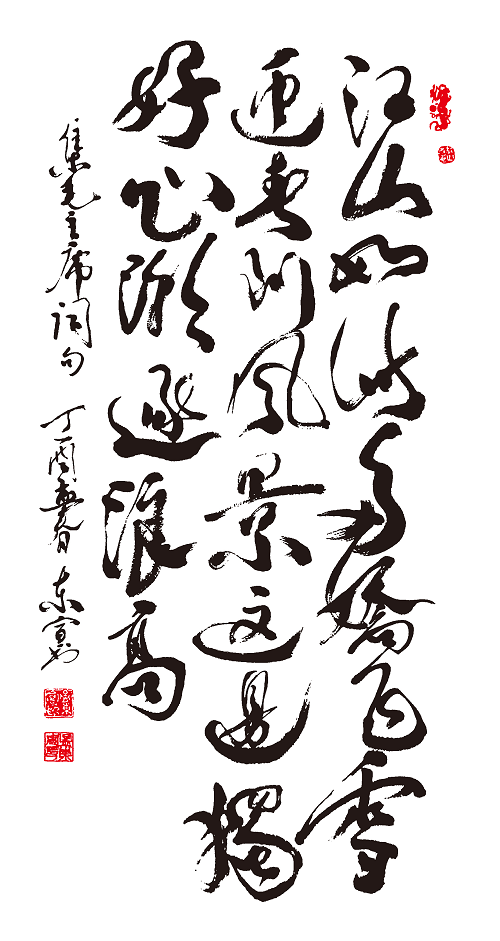 江山如此多嬌飞雪
迎春到风景这边獨
好心潮逐浪高
集毛主席词句 丁酉春 东